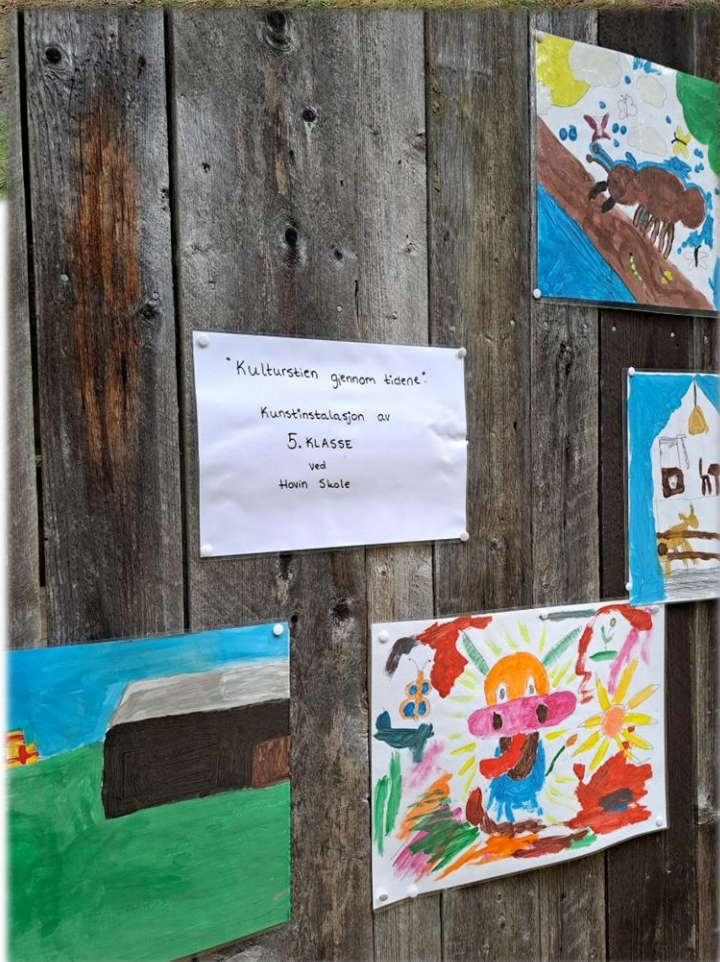 "Kulturstien gjennom tidene".
Kunstinstalasjon av
5. KLASSE
ved
Hovin Skole